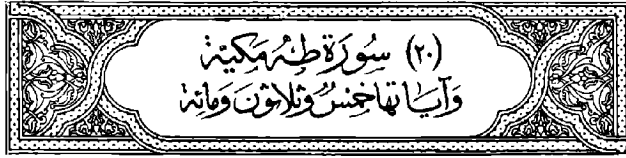 (٢٠) سُورَة طٰهٰ مَكيّة
وَآيَاتهَا خَمْسٌ وَثَلاثونَ وَمائة